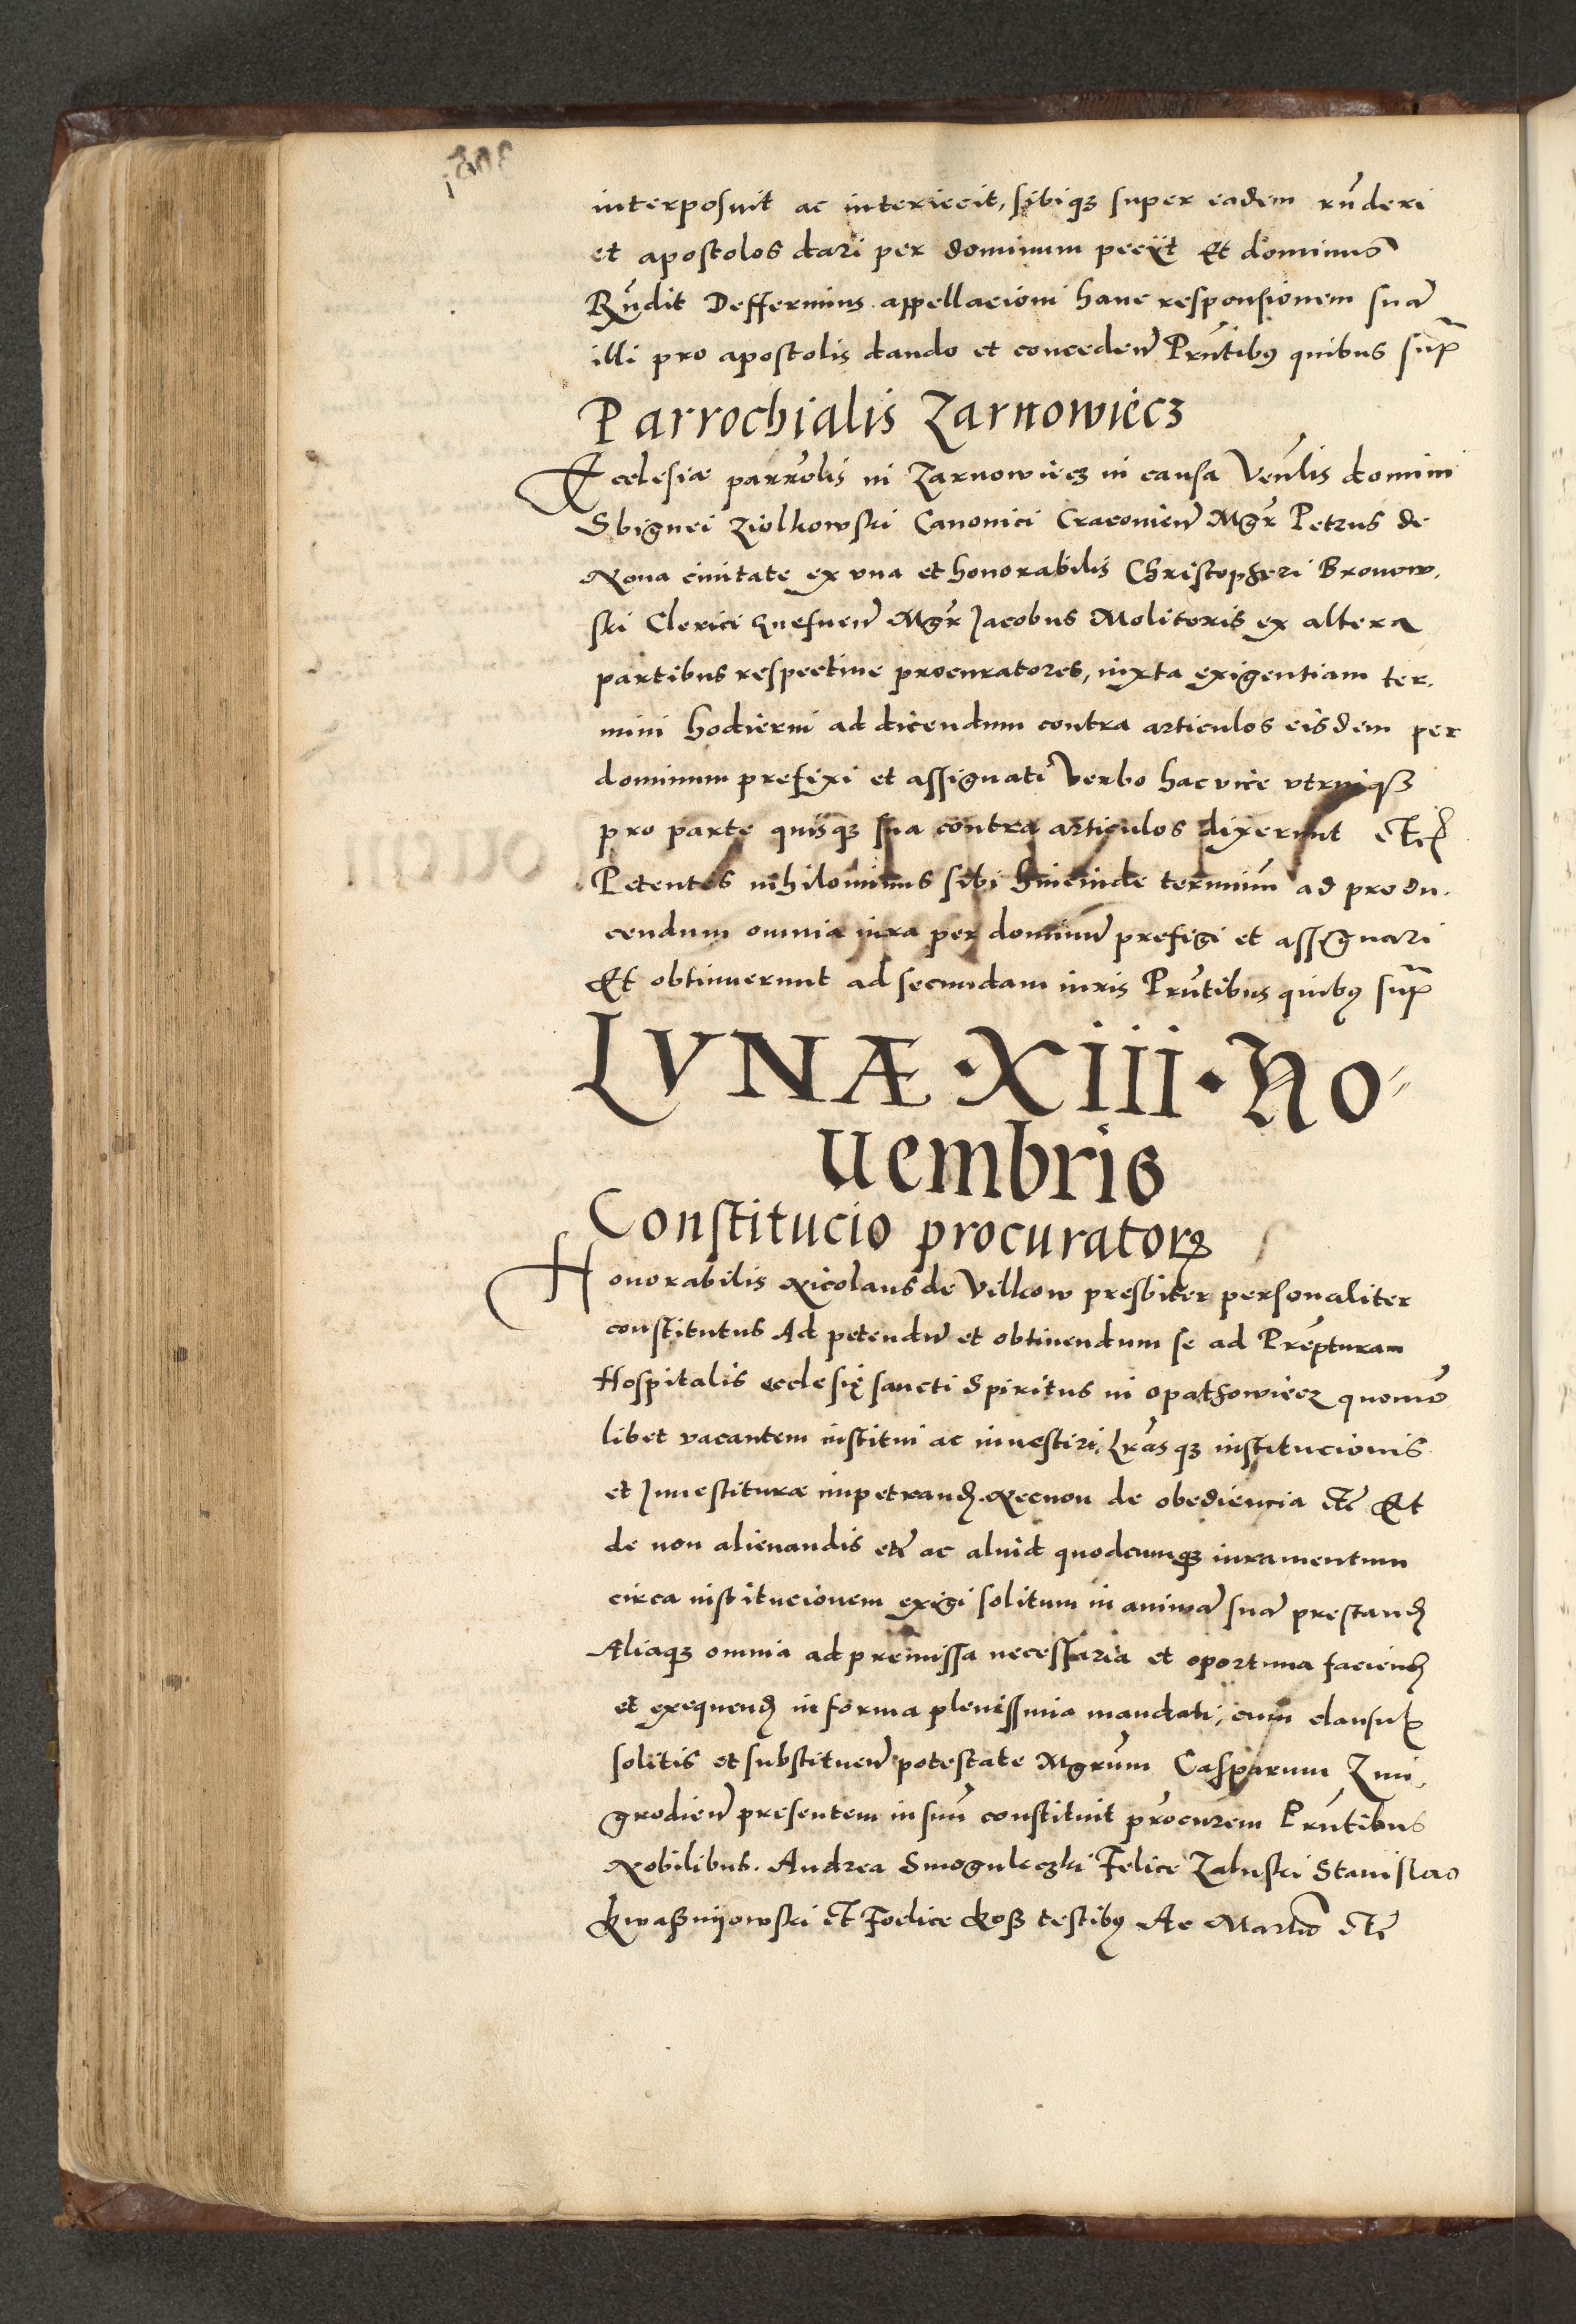 interposuit ac interiecit, sibiqʒ super eadem rñderi
et apostolos dari per dominum peciit Et dominus
Rñdit Deffermus appellacioni hanc responsionem suã
illi pro apostolis dando et conceden̄ Pr̃ntibꝰ quibus supͣ
Parrochialis Zarnowiecz
Ecclesiæ parrõlis in Zarnowiecz in causa Veñlis domini
Sbignei Ziolkowski Canonici Cracovien̄ Mgr̃ Petrus de
Noua ciuitate ex vna et honorabilis Christopheri Bronow,
ski Clerici Gnesnen̄ Mgr̃ Jacobus Molitoris ex altera
partibus respectiue procuratores, iuxta exigentiam ter,
mini hodierni ad dicendum contra articulos eisdem per
dominum prefixi et assignati Verbo hac vice vtriqʒ
pro parte quisqʒ sua contra articulos dixerunt
Petentes nihilominus sibi hincinde terminũ ad produ,
cendum omnia iura per dominũ prefigi et assignari
Et obtinuerunt ad secundam iuris Pr̃ntibus quibꝰ supͣ
LVNÆ · XIII · No=
uembris
Constitucio procuratorꝝ
Honorabilis Nicolaus de Vilkow presbiter personaliter
constitutus Ad petendũ et obtinendum se ad Prẽpturam
Hospitalis ecclesię sancti Spiritus in opathowiecz quomõ
libet vacantem institui ac inuestiri, Lr̃as qʒ institucionis
et Inuestituræ impetrandꝭ. Necnon de obediencia etc̃ Et
de non alienandis etc̃ ac aliud quodcunqʒ iuramentum
circa institucionem exigi solitum in animã suã prestandꝭ
Aliaqʒ omnia ad premissa necessaria et oportuna faciendꝭ
et exequendꝭ in forma plenissima mandati, cum clausulꝭ
solitis et substituen̄ potestate Mgr̃um Casparum Zmi,
grodien̄ presentem in suũ constituit prõcurem Pr̃ntibus
Nobilibus. Andrea Smoguleczki Felice Zaluski Stanislao
Kwaßnijowski et Foelice Koß testibꝰ Ac Martiõ etc̃